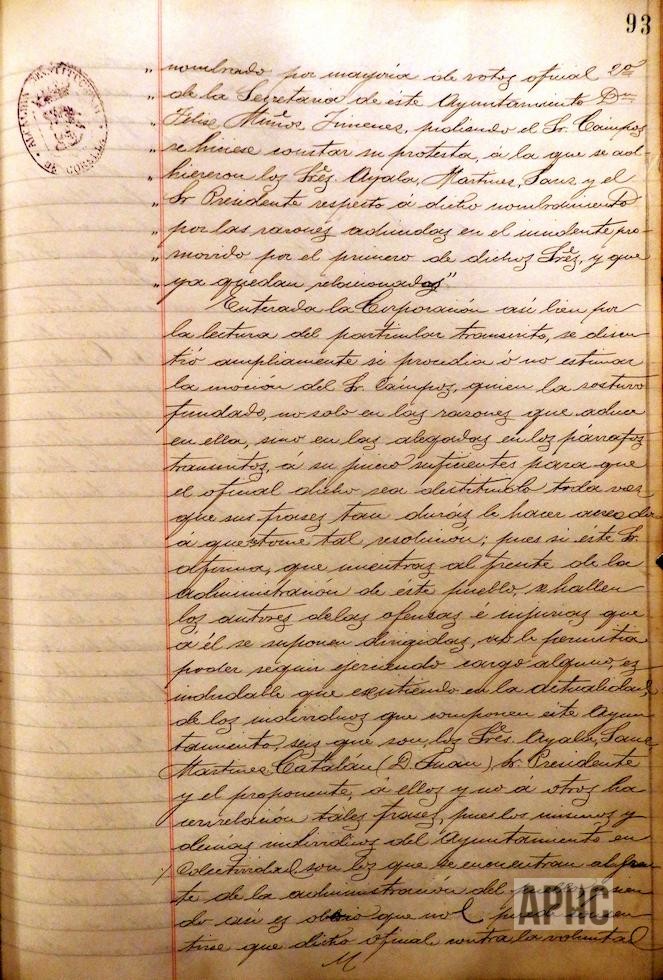 93
ALCALDIA CONSTITUCIONAL DE CORELLA
" nombrado por mayoria de votos oficial 2º
" de la Secretaria de este Ayuntamiento Dn
" Felise Muñoz Jimenez, pidiendo el Sr. Campos
" se hiciese constar su protesta, á la que se ad-
" hirieron los Srēs. Ayala, Martinez, Sanz y el
" Sr Presidente respecto á dicho nombramiento
" por las razones aducidas en el incidente pro-
" movido por el primero de dichos Srēs, y que
" ya quedan relacionadas"
Enterada la Corporación asi bien por
la lectura del particular transcrito, se discu-
tió ampliamente si procedia ó no estimar
la moción del Sr. Campos, quien la sostuvo
fundado, no solo en las razones que aduce
en ella, sino en las alegadas en los párrafos
transcritos, á su juicio suficientes para que
el oficial dicho sea destituido toda vez
que sus frases tan duras le hacen acreedor
á que se tome tal resolucion; pues si éste Sr.
afirma, que mientras al frente de la
administración de éste pueblo, se hallen
los autores de las ofensas é injurias que
á él se suponen dirigidas, no le permitia
poder seguir ejerciendo cargo alguno, es
indudable que existiendo en la actualidad,
de los individuos que componen este Ayun-
tamiento, seis que son, los Srēs. Ayala, Sanz
Martinez, Catalán (D. Juan), Sr. Presidente
y el proponente, á ellos y no á otros ha
cen relación tales frases, pues los mismos y
demás individuos del Ayuntamiento en
colectividad son los que se encuentran al fren
te de la administración del
do asi es obvio que no
tirse que dicho oficial contra la voluntad
APHC